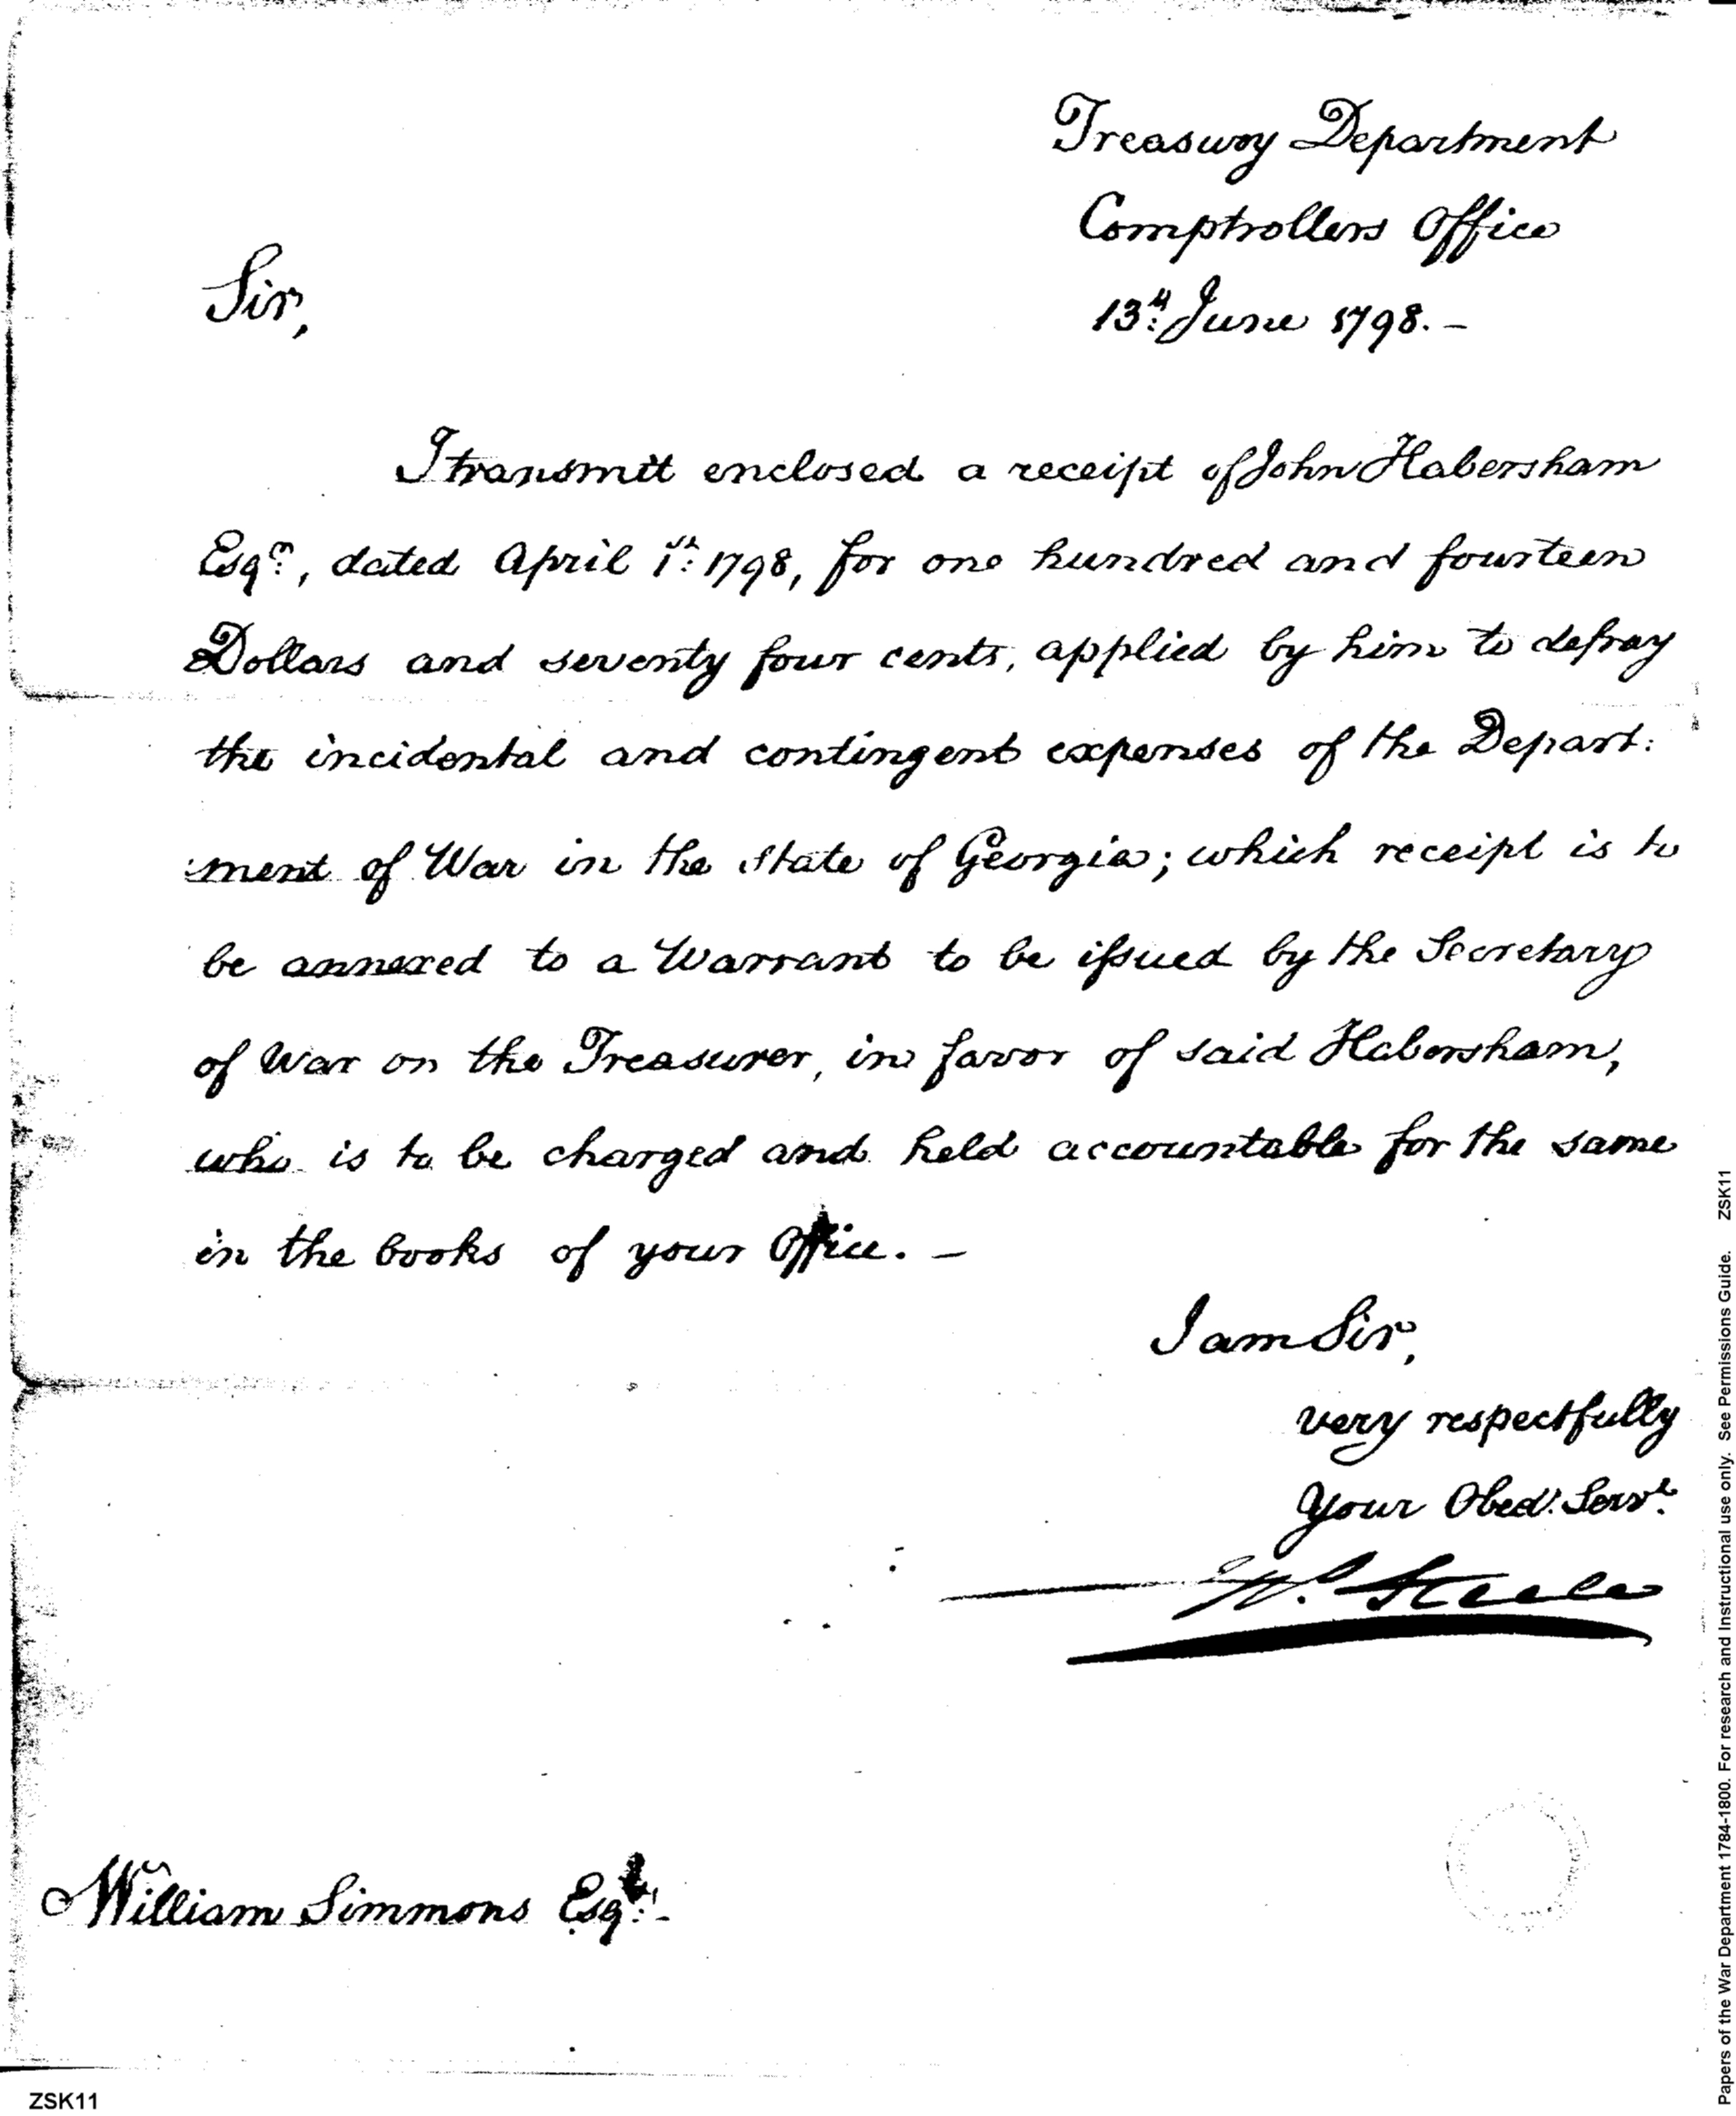 Treasury Department
Comptrollers Office
13th June 1798. -
Sir,
I transmit enclosed a receipt of John Habersham
Esqr., dated April 1st 1798, for one hundred and fourteen
Dollars and seventy four cents, applied by him to defray
the incidental and contingent expenses of the Depart:
:ment of War in the State of Georgia; which receipt is to
be annexed to a Warrant to be issued by the Secretary
of War on the Treasurer, in favor of said Habersham,
who is to be charged and held accountable for the same
in the books of your Office. -
I am Sir,
very respectfully
Your Obed. Servt.
Steele
William Simmons Esqr. -
ZSK11
Papers of the War Department 1784-1800. For research and Instructional use only. See Permissions Guide. ZSK11